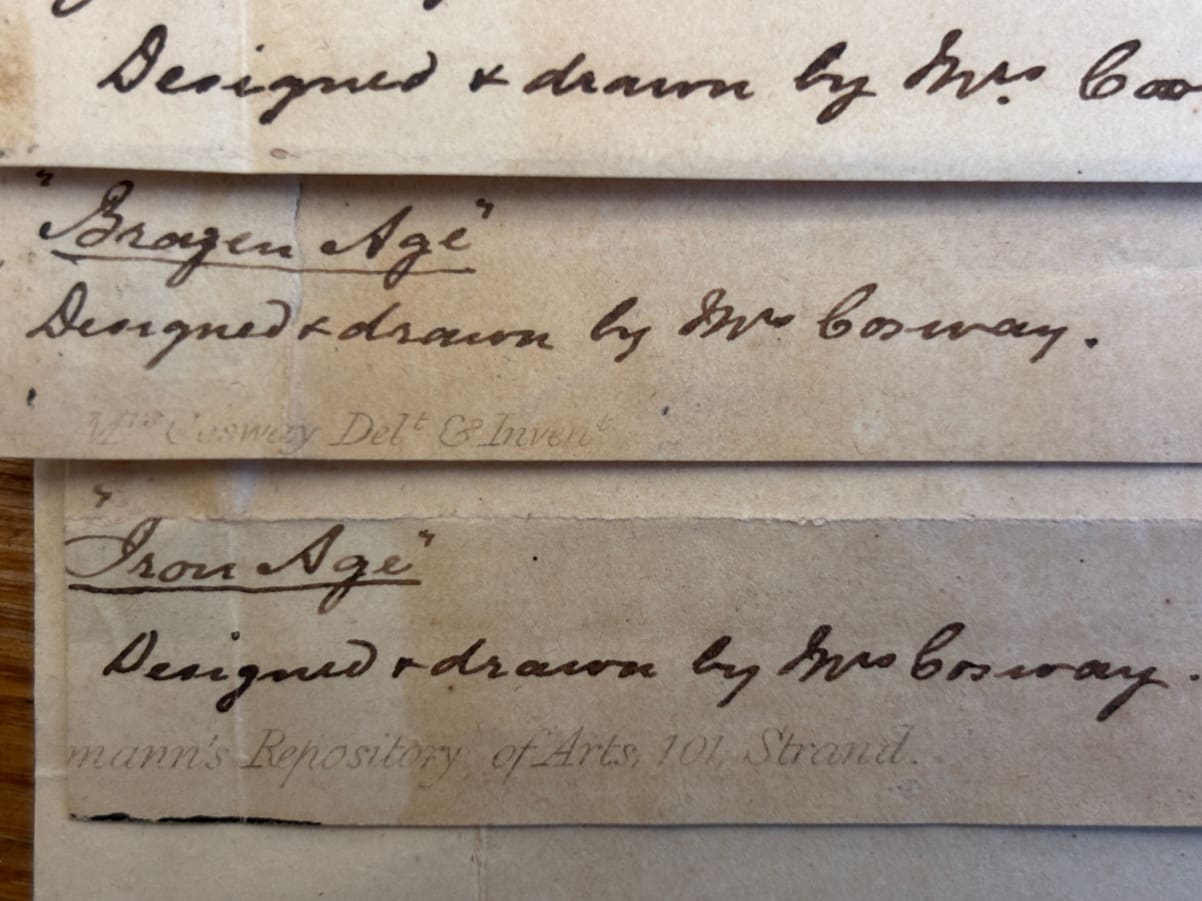 Designed & drawn by Mrs. Cos
"Brazen Age"
Designed & drawn by Mrs Cosway.
Mrs Cosway Delt & Invent
"Iron Age"
Designed & drawn by Mrs Cosway.
mann's Repository of Arts, 101, Strand.